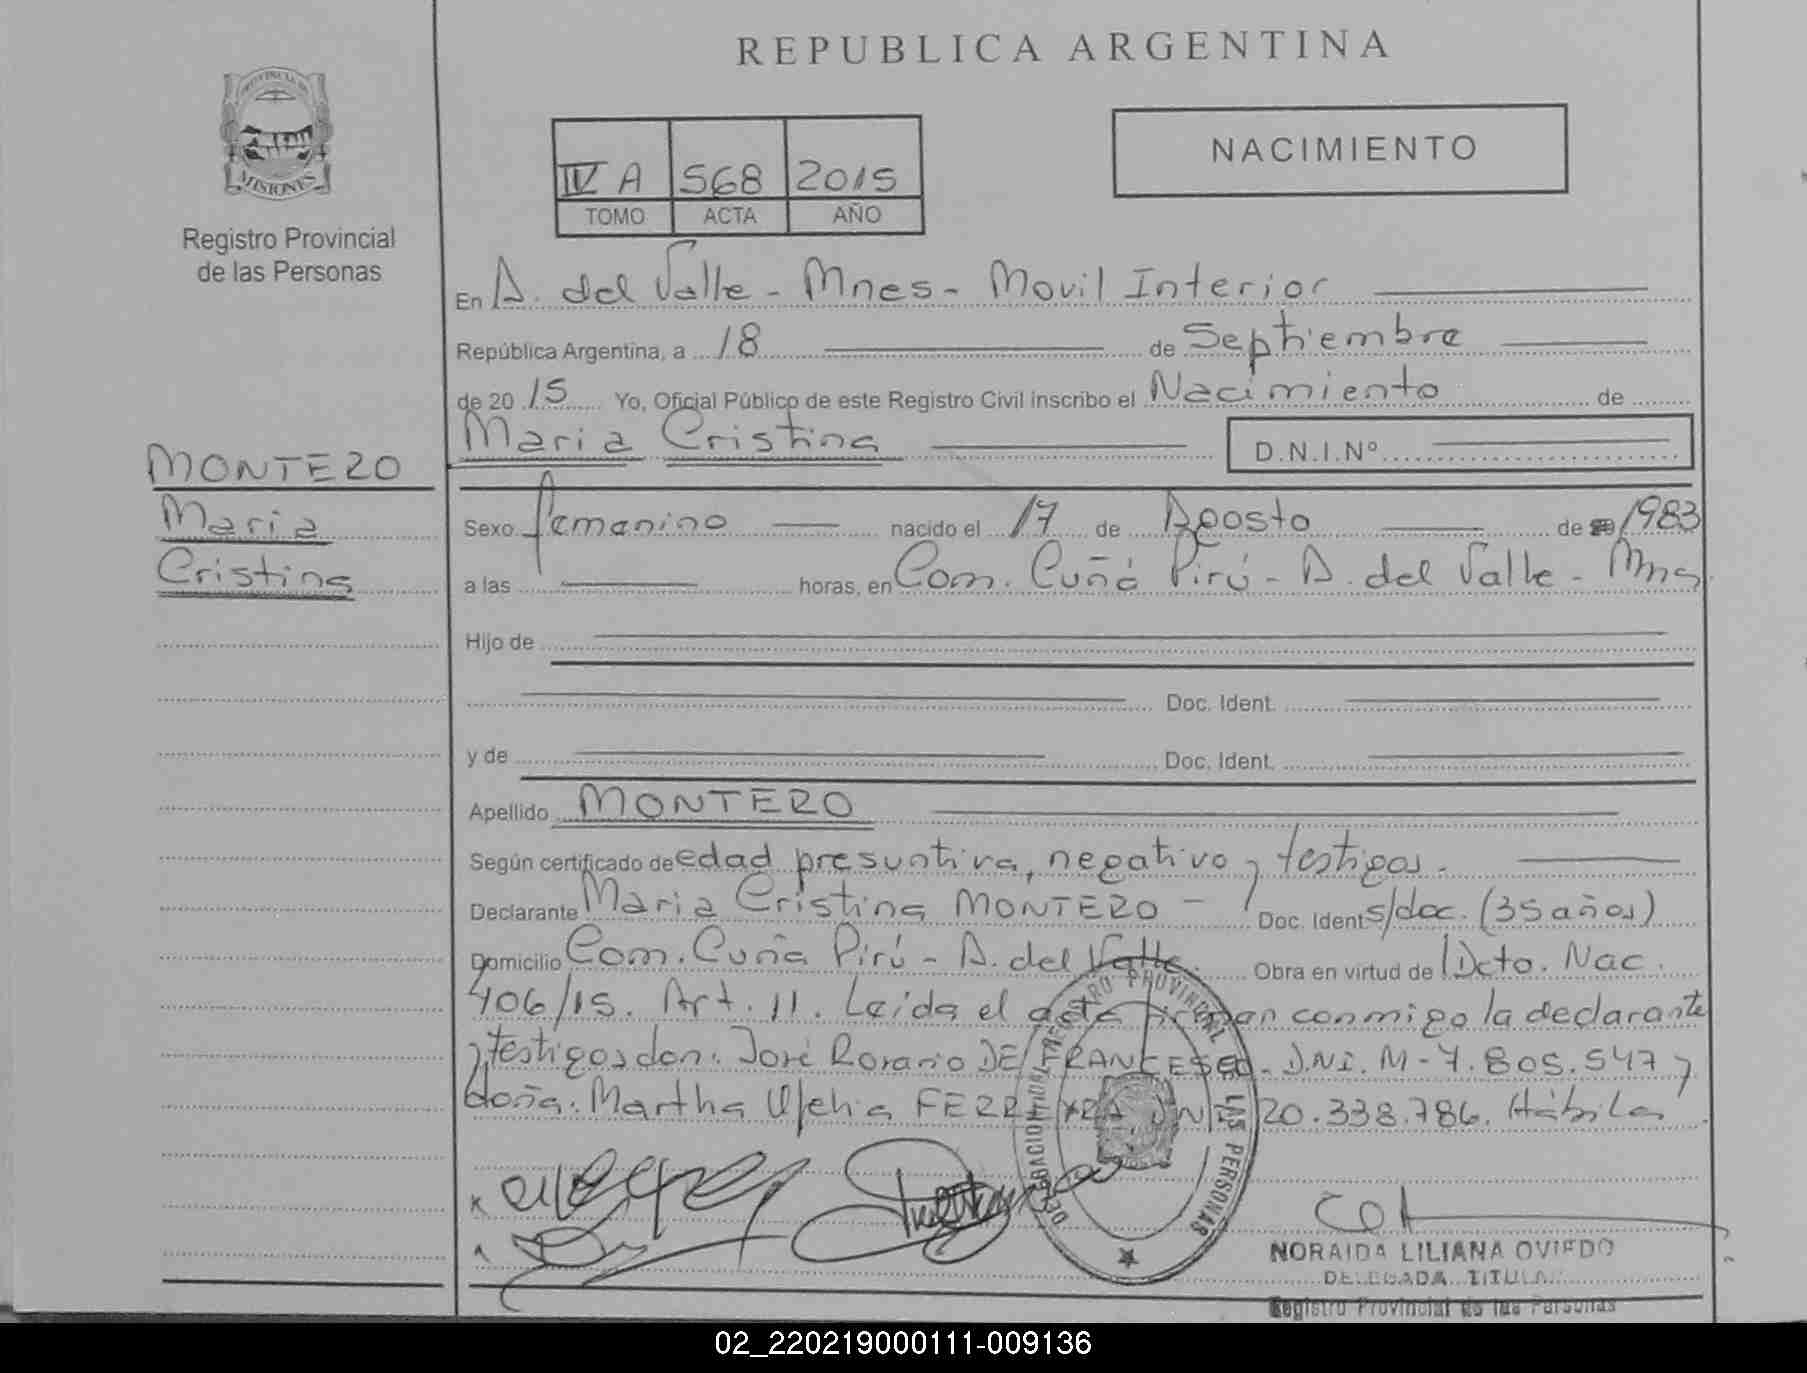 REPUBLICA ARGENTINA
MISIONES
Registro Provincial
de las Personas
IV A 568 2015
TOMO ACTA AÑO
NACIMIENTO
En A. del Valle - Mnes - Movil Interior
República Argentina, a 18 de Septiembre
de 2015 Yo, Oficial Público de este Registro Civil inscribo el Nacimiento de
Maria Cristina D.N.I.Nº
MONTERO
Maria
Cristina
Sexo femenino nacido el 17 de Agosto de 1983
a las horas, en Com. Cuñá Pirú - A. del Valle - Mns
Hijo de
Doc. Ident.
y de Doc. Ident.
Apellido MONTERO
Según certificado de edad presuntiva, negativo y testigos.
Declarante Maria Cristina MONTERO - Doc. Ident s/doc. (35 años)
Domicilio Com. Cuña Pirú - A. del Valle. Obra en virtud de Dcto. Nac.
406/15. Art. 11. Leida el acta firman conmigo la declarante
y testigos don: José Rosario DE FRANCESCO. D.N.I. M-7.805.547 y
doña: Martha Ofelia FERREYRA DNI 20.338.786. Hábiles
PROVINCIAL
LAS PERSONAS
NORAIDA LILIANA OVIEDO
DELEGADA TITULAR
Registro Provincial de las Personas
02_220219000111-009136